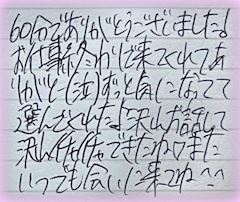 60分でありがとうございました!
お仕事終わりで来てくれてあ
りがとー(泣)ずっと気になってて
選んでくれたよ沢山お話して
沢山イチャイチャできたかまた
いつでも会いに来てね^^